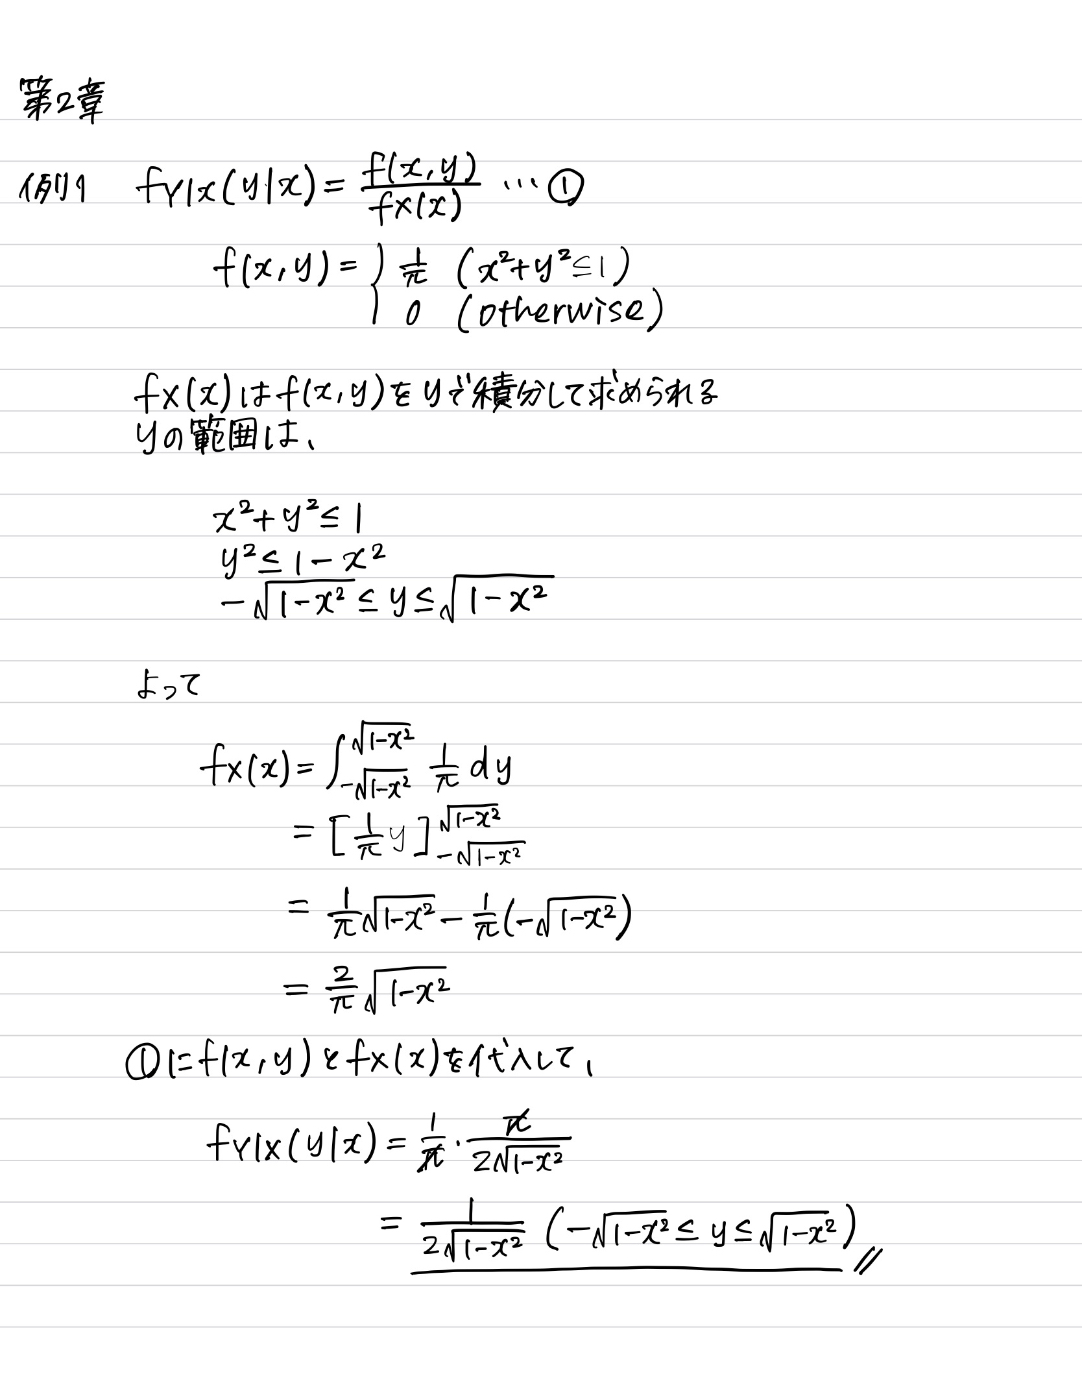 第2章
例1 fY|X(y|x) = f(x,y)/fX(x) … ①
f(x,y) = { 1/π (x²+y²≦1)
0 (otherwise)
fX(x)はf(x,y)をyで積分して求められる
yの範囲は、
x²+y²≦1
y²≦1-x²
-√(1-x²)≦y≦√(1-x²)
よって
fX(x)=∫_{-√(1-x²)}^{√(1-x²)} 1/π dy
=[1/π y]_{-√(1-x²)}^{√(1-x²)}
=1/π√(1-x²)-1/π(-√(1-x²))
=2/π√(1-x²)
①にf(x,y)とfX(x)を代入して、
fY|X(y|x)=1/π・π/2√(1-x²)
=1/2√(1-x²) (-√(1-x²)≦y≦√(1-x²))//